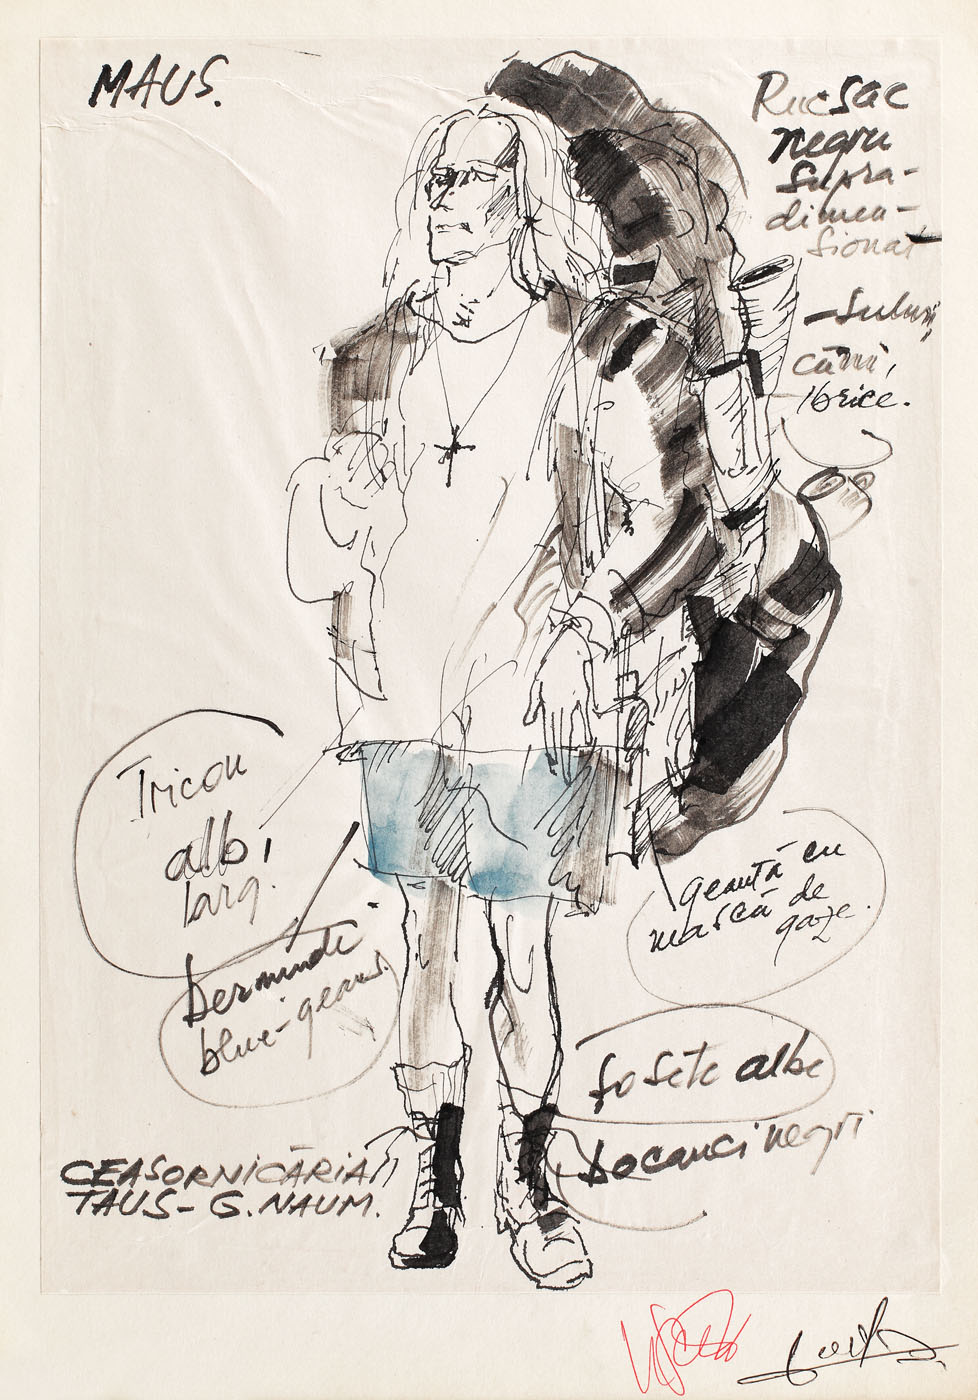 MAUS.
Rucsac
negru
supra-
dimen-
sionat
-Suluri,
căni,
ibrice.
Tricou
alb,
larg.
geantă cu
mască de
gaze.
Bermude
blue-geans.
Șosete albe
Bocanci negri
CEASORNICĂRIA
TAUS- G. NAUM.